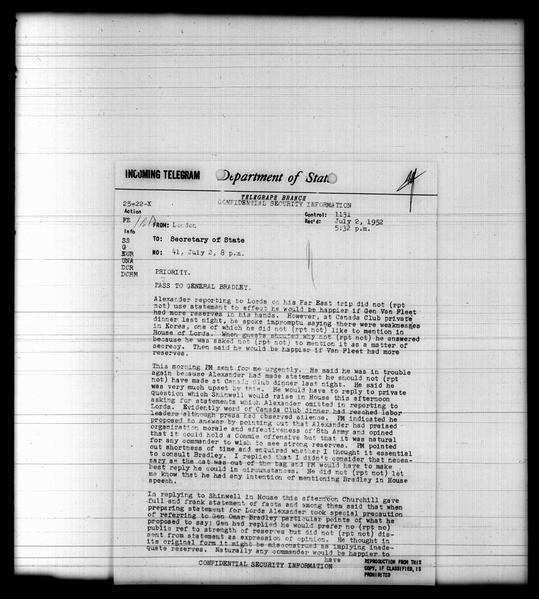 INCOMING TELEGRAM Department of State
TELEGRAPH BRANCH
25-22-X CONFIDENTIAL SECURITY INFORMATION
Action Control: 1131
FE Rec'd: July 2, 1952
FROM: London 5:32 p.m.
Info
SS TO: Secretary of State
G
EUR NO: 41, July 2, 8 p.m.
UNA
DCR
DCHM PRIORITY.
PASS TO GENERAL BRADLEY.
Alexander reporting to Lords on his Far East trip did not (rpt
not) use statement to effect he would be happier if Gen Van Fleet
had more reserves in his hands. However, at Canada Club private
dinner last night, he spoke impromptu saying there were weaknesses
in Korea, one of which he did not (rpt not) like to mention in
House of Lords. When guests shouted why not (rpt not) he answered
because he was asked not (rpt not) to mention it as a matter of
secrecy. Then said he would be happier if Van Fleet had more
reserves.
This morning PM sent for me urgently. He said he was in trouble
again because Alexander had made statement he should not (rpt
not) have made at Canada Club dinner last night. He said he
was very much upset by this. He would have to reply to private
question which Shinwell would raise in House this afternoon
asking for statements which Alexander omitted in reporting to
Lords. Evidently word of Canada Club dinner had reached labor
leaders although press had observed silence. PM indicated he
proposed to answer by pointing out that Alexander had praised
organization morale and effectiveness of 8th Army and opined
that it could hold a Commie offensive but that it was natural
for any commander to wish to see strong reserves. PM pointed
out shortness of time and enquired whether I thought it essential
to consult Bradley. I replied that I didn't consider that neces-
sary as the cat was out of the bag and PM would have to make
best reply he could in circumstances. He did not (rpt not) let
me know that he had any intention of mentioning Bradley in House
speech.
In replying to Shinwell in House this afternoon Churchill gave
full and frank statement of facts and among them said that when
preparing statement for Lords Alexander took special precaution
of referring to Gen Omar Bradley particular points of what he
proposed to say; Gen had replied he would prefer no (rpt no)
public ref to strength of reserves but did not (rpt not) dis-
sent from statement as expression of opinion. He thought in
its original form it might be misconstrued as implying inade-
quate reserves. Naturally any commander would be happier to
have
CONFIDENTIAL SECURITY INFORMATION
REPRODUCTION FROM THIS
COPY, IF CLASSIFIED, IS
PROHIBITED